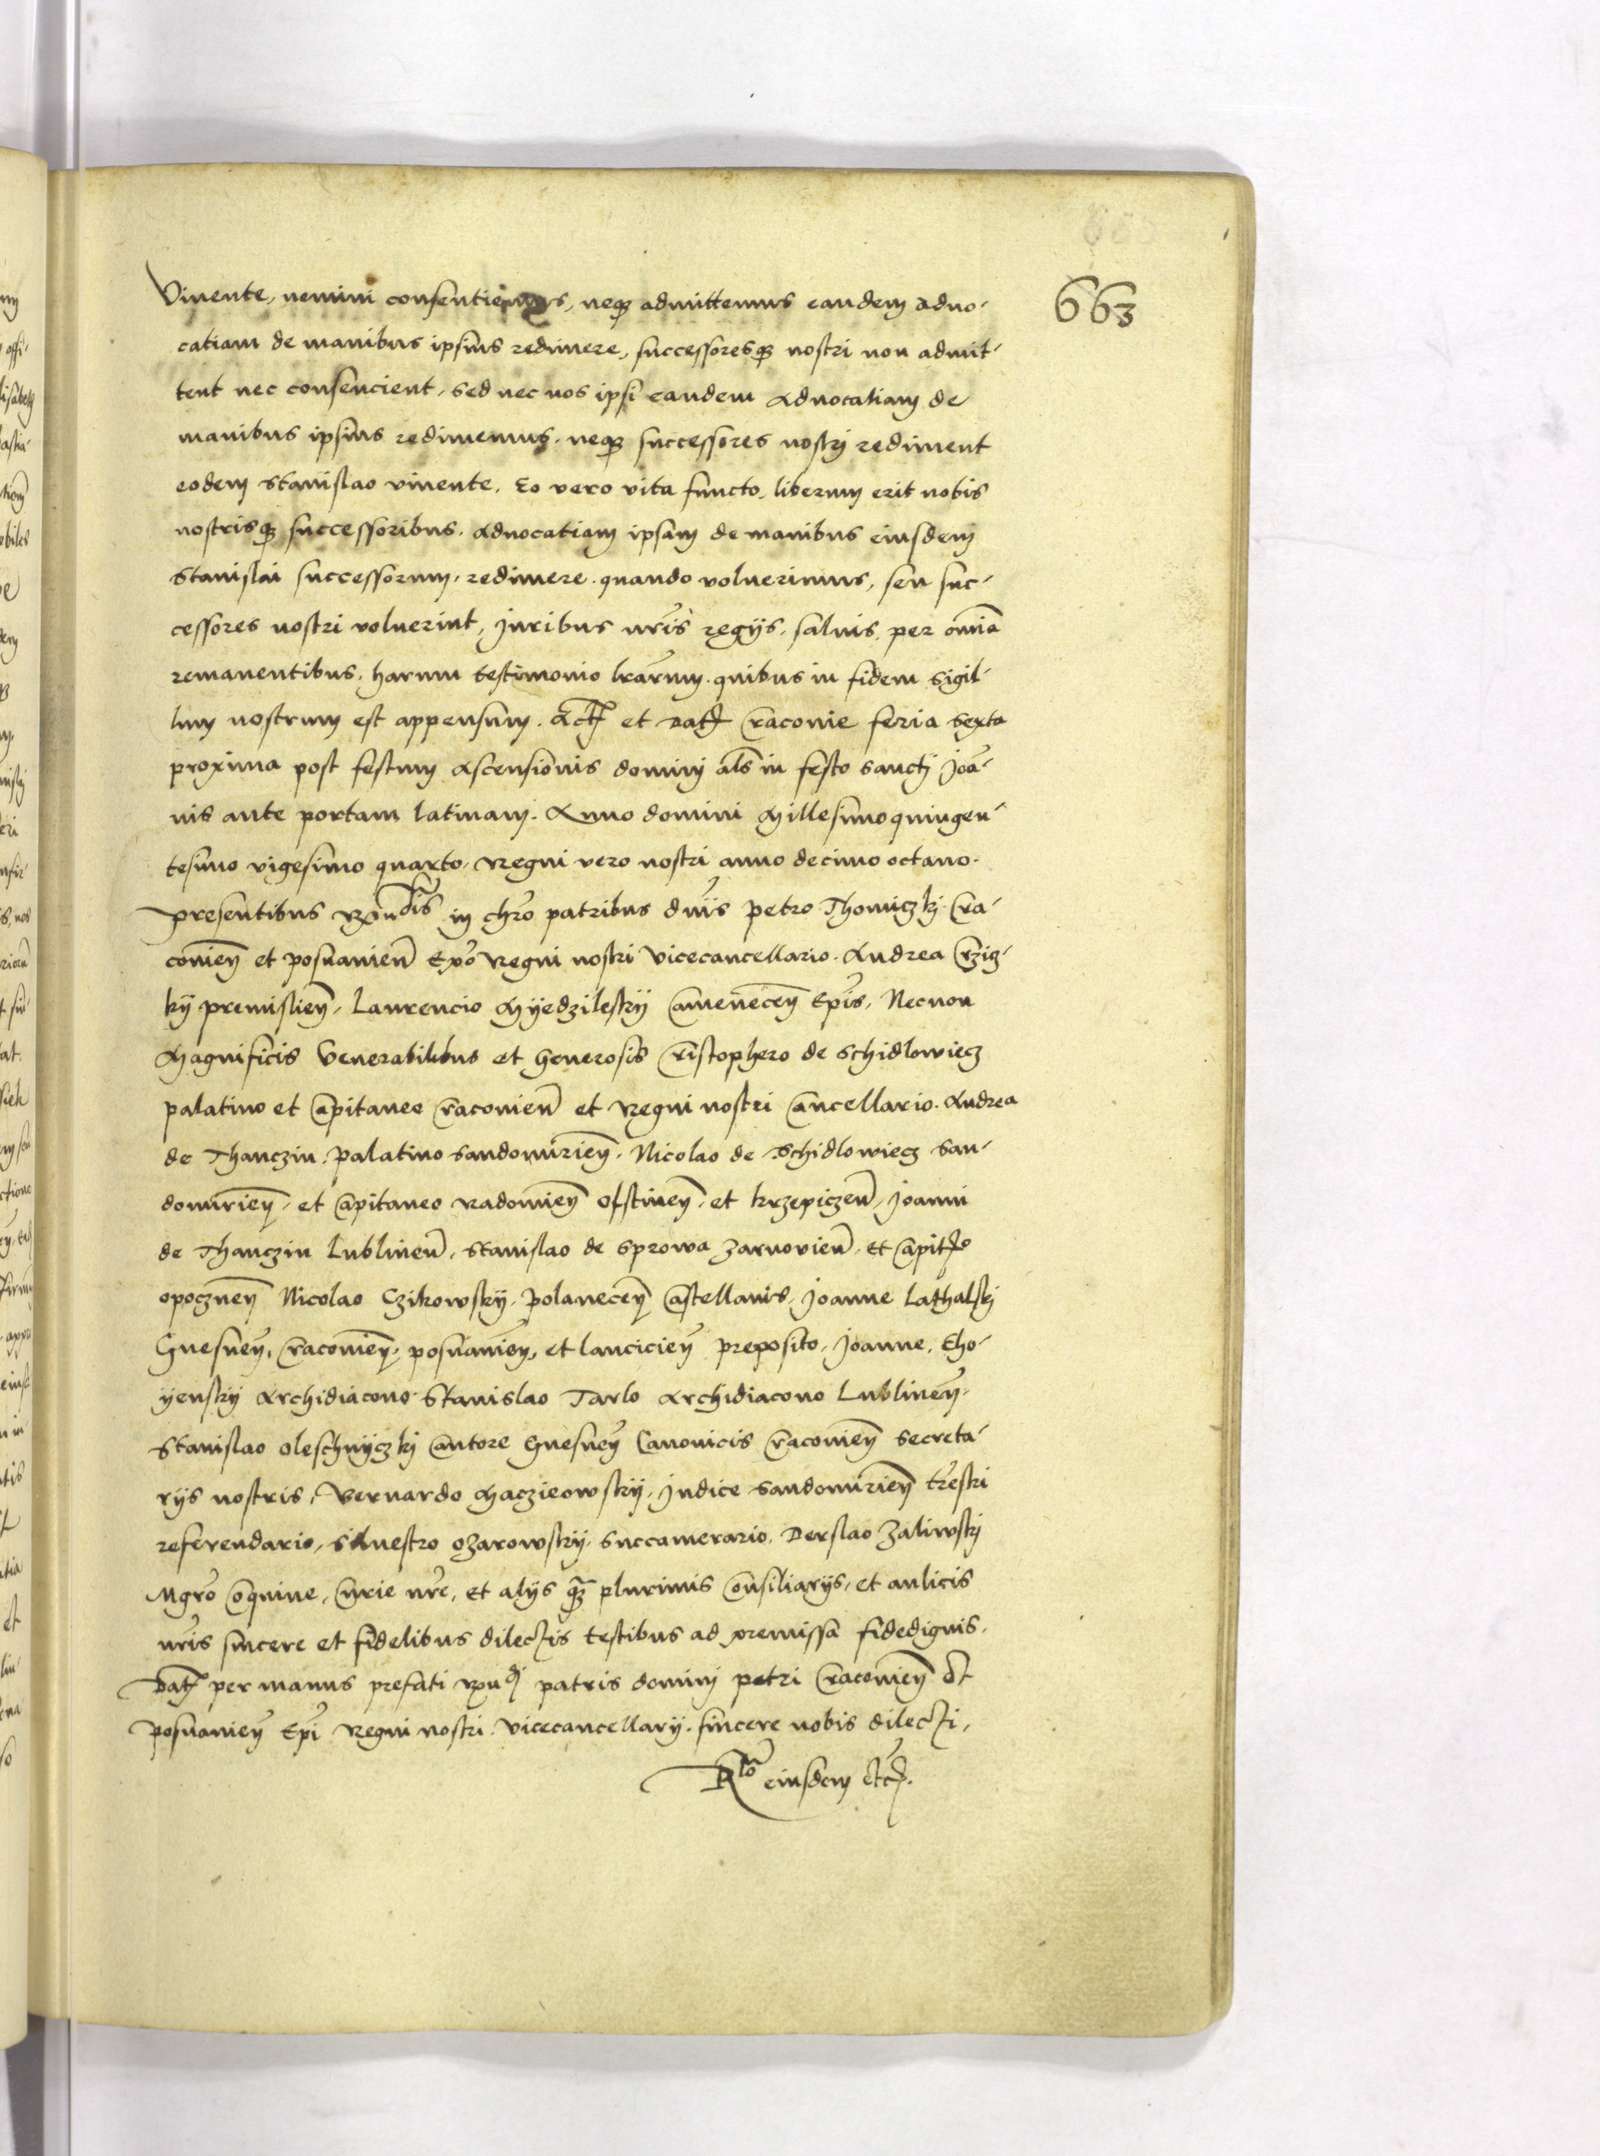 663
Vivente, nemini consentiemus, neq(ue) admittemus eandem advo-
catiam de manibus ipsius redimere, successoresq(ue) nostri non admit-
tent nec consencient, sed nec nos ipsi eandem advocatiam de
manibus ipsius redimemus, neq(ue) successores nostri rediment
eodem Stanislao vivente. Eo vero vita functo, liberum erit nobis
nostrisq(ue) successoribus, advocatiam ipsam de manibus eiusdem
Stanislai successorum, redimere, quando voluerimus, seu suc-
cessores nostri voluerint, Juribus nris regijs, salvis, per omnia
remanentibus, harum testimonio lrarum, quibus in fidem sigil-
lum nostrum est appensum. Act et Dat Cracovie feria sexta
proxima post festum Ascensionis domini als in festo sancti Joa-
nis ante portam latinam. Anno domini Millesimoquingen-
tesimo vigesimo quarto, Regni vero nostri anno decimo octavo.
Presentibus Rndis in chro patribus dnis Petro Thomiczkj Cra-
covien et Posnanien Epo Regni nostri Vicecancellario. Andrea Crzig-
kij Premislien, Laurencio Mijedzileskij Camenecen Epis, Necnon
Magnificis Venerabilibus et Generosis Cristophero de Schidlowiecz
palatino et Capitaneo Cracovien et Regni nostri Cancellario. Andrea
de Thanczin, Palatino Sandomirien, Nicolao de Schidlowiecz San-
domirien, et Capitaneo Radomien Olstinen, et Krzepiczen, Joanni
de Thanczin Lublinen, Stanislao de Sprowa Zarnovien, et Capit
opocznen Nicolao Czikowskij, Polanecen Castellanis, Joanne Lathalskj
Gnesnen, Cracovien, posnanien, et lancicien preposito, Joanne, Cho-
ijenskij Archidiacono Stanislao Tarlo Archidiacono Lublinen,
Stanislao Oleschnijczkj Cantore Gnesnen Canonicis Cracovien Secreta-
rijs nostris, Bernardo Maczieowskij, Judice Sandomirien trestri
referendario, Silvestro Ozarowskij, Succamerario, Derslao Zaliwskj
Mgro Coquine, Curie nre, et alijs q(uam) plurimis Consiliarijs, et aulicis
nris sincere et fidelibus dilectis testibus ad premissa fidedignis.
Dat per manus prefati Rndi patris domini Petri Cracovien et
Posnanien Epi Regni nostri Vicecancellarij, sincere nobis dilecti,
Rlo eiusdem etc.